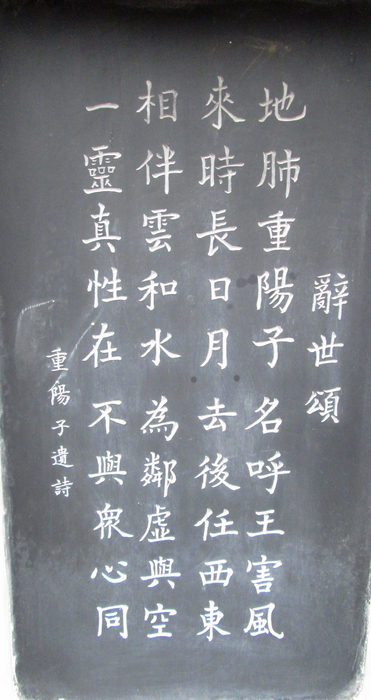 辭世頌
地肺重陽子 名呼王害風
來時長日月 去後任西東
相伴雲和水 為鄰虛與空
一靈真性在 不與衆心同
重陽子遺詩